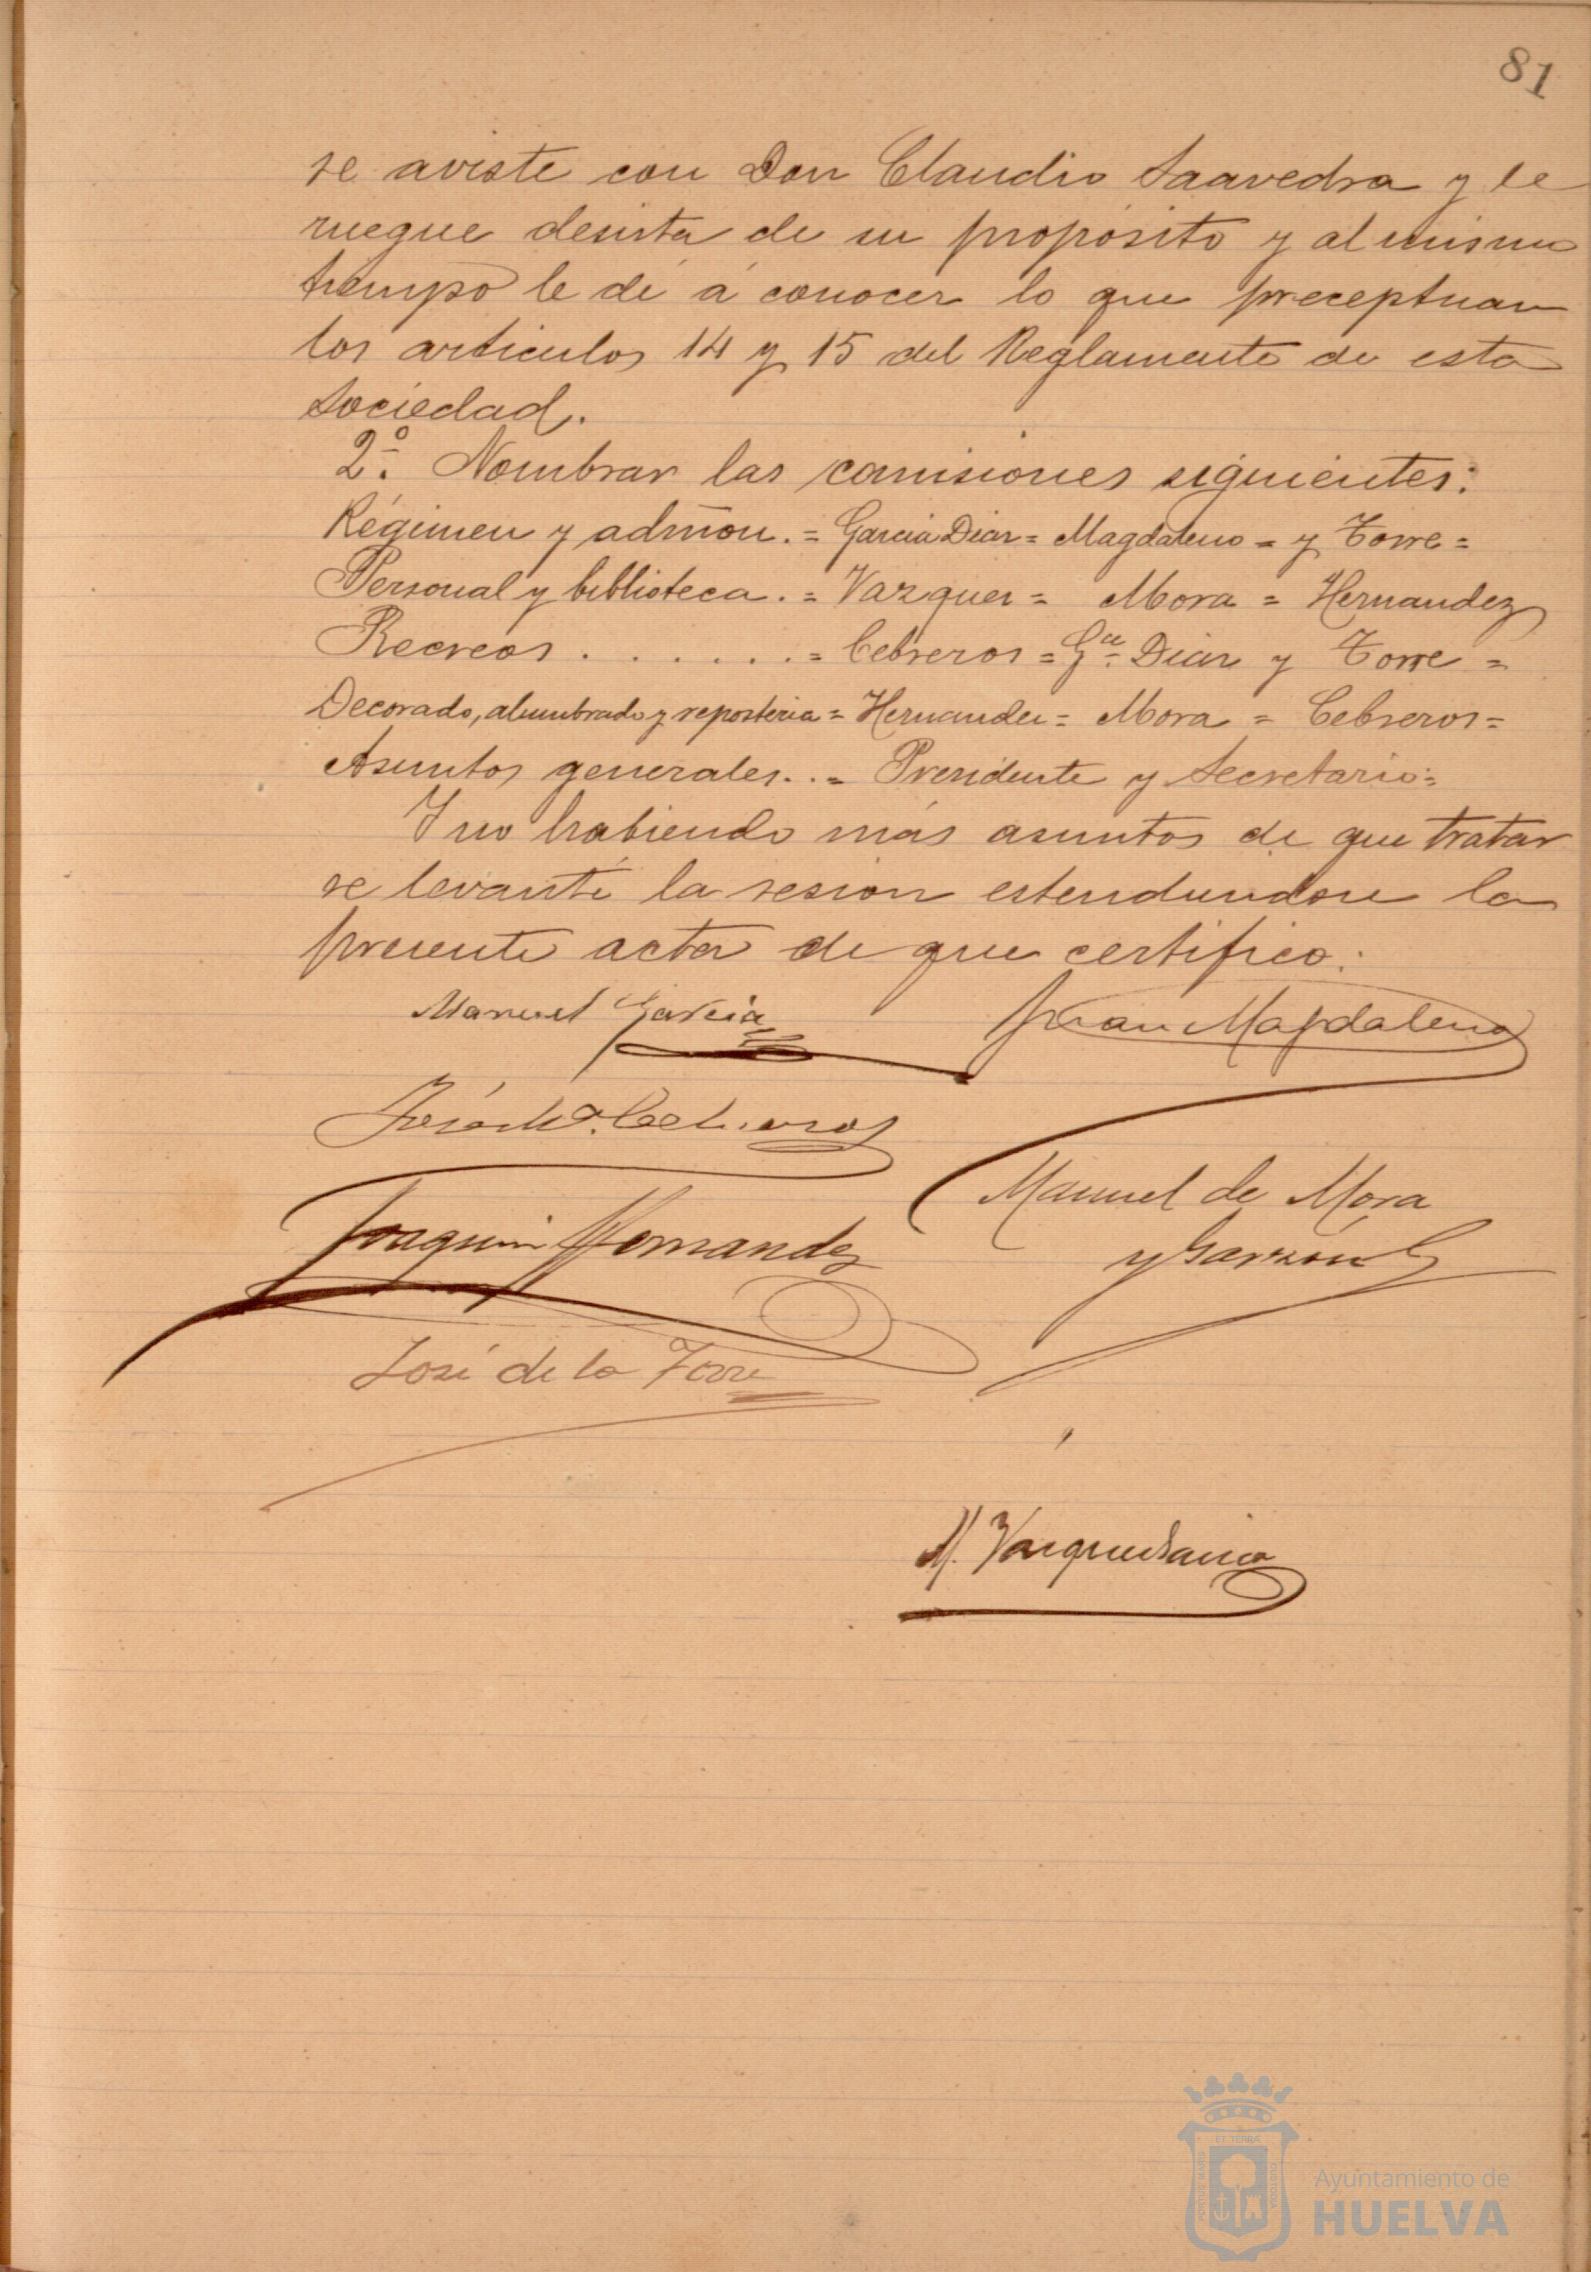 81
se aviste con Don Claudio Saavedra y le
ruegue desista de su propósito y al mismo
tiempo le dé á conocer lo que preceptuan
los articulos 14 y 15 del Reglamento de esta
Sociedad.
2º. Nombrar las comisiones siguientes:
Régimen y admon. = Garcia Diaz = Magdaleno = y Torre =
Personal y biblioteca . = Vazquez = Mora = Hernandez
Recreos . . . . . . . = Cebreros = Gcia Diaz y Torre =
Decorado, alumbrado y reposteria = Hernandez = Mora = Cebreros =
Asuntos generales . . = Presidente y Secretario =
Y no habiendo más asuntos de que tratar
se levantó la sesion estendiendose la
presente acta de que certifico.
Manuel Garcia
Juan Magdaleno
José Mª. Cebreros
Manuel de Mora
y Garzón
Joaquin Hernandez
José de la Torre
M. Vazquez
ET TERRÆ
PORTUS MARIS
CUSTODIA
Ayuntamiento de
HUELVA